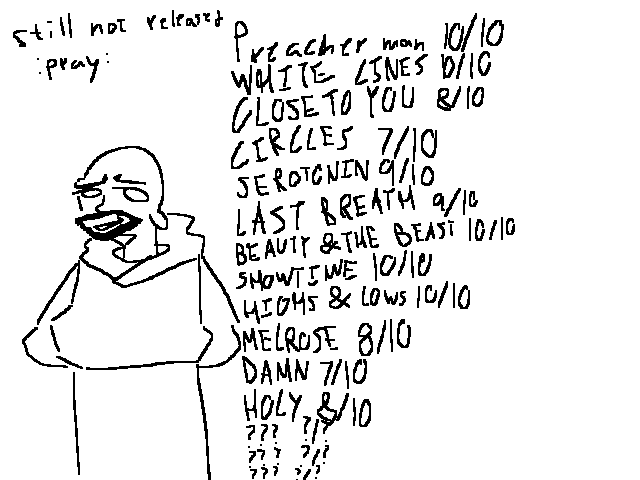 still not released
:pray:
Preacher man 10/10
WHITE LINES 10/10
CLOSE TO YOU 8/10
CIRCLES 7/10
SEROTONIN 9/10
LAST BREATH 9/10
BEAUTY & THE BEAST 10/10
SHOWTIME 10/10
HIGHS & LOWS 10/10
MELROSE 8/10
DAMN 7/10
HOLY 8/10
??? ?/?
??? ?/?
??? ?/?